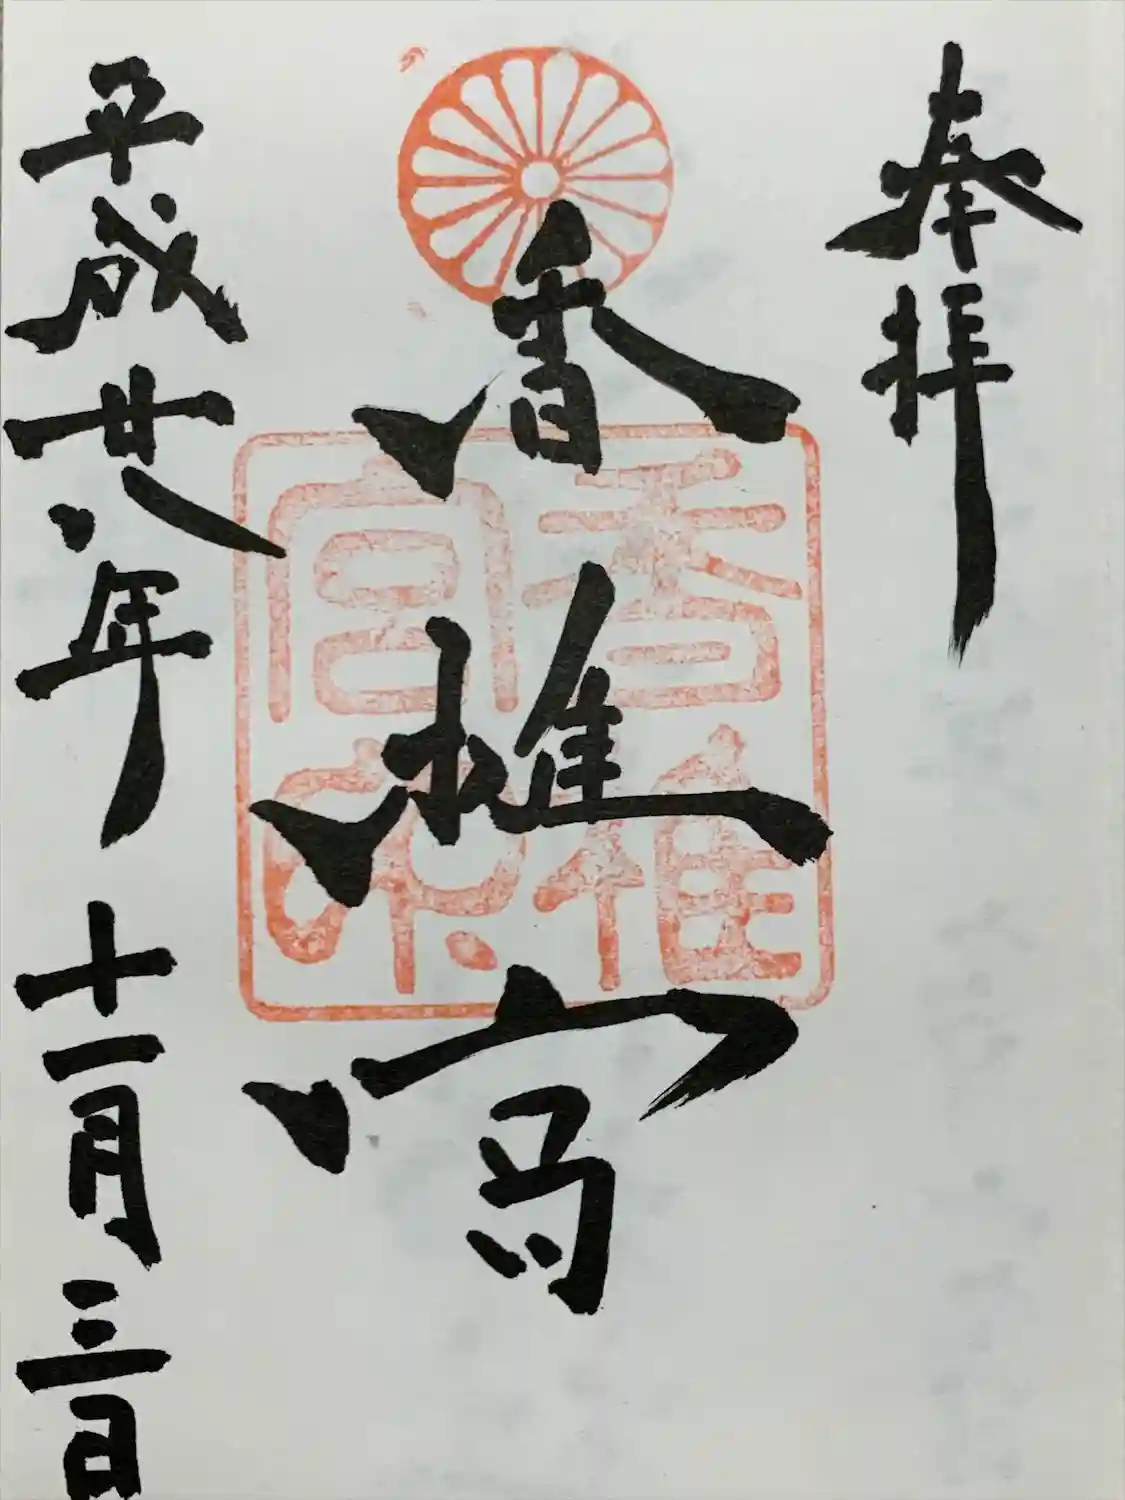 奉拝
香椎宮
香椎宮印
平成廿八年十一月三日